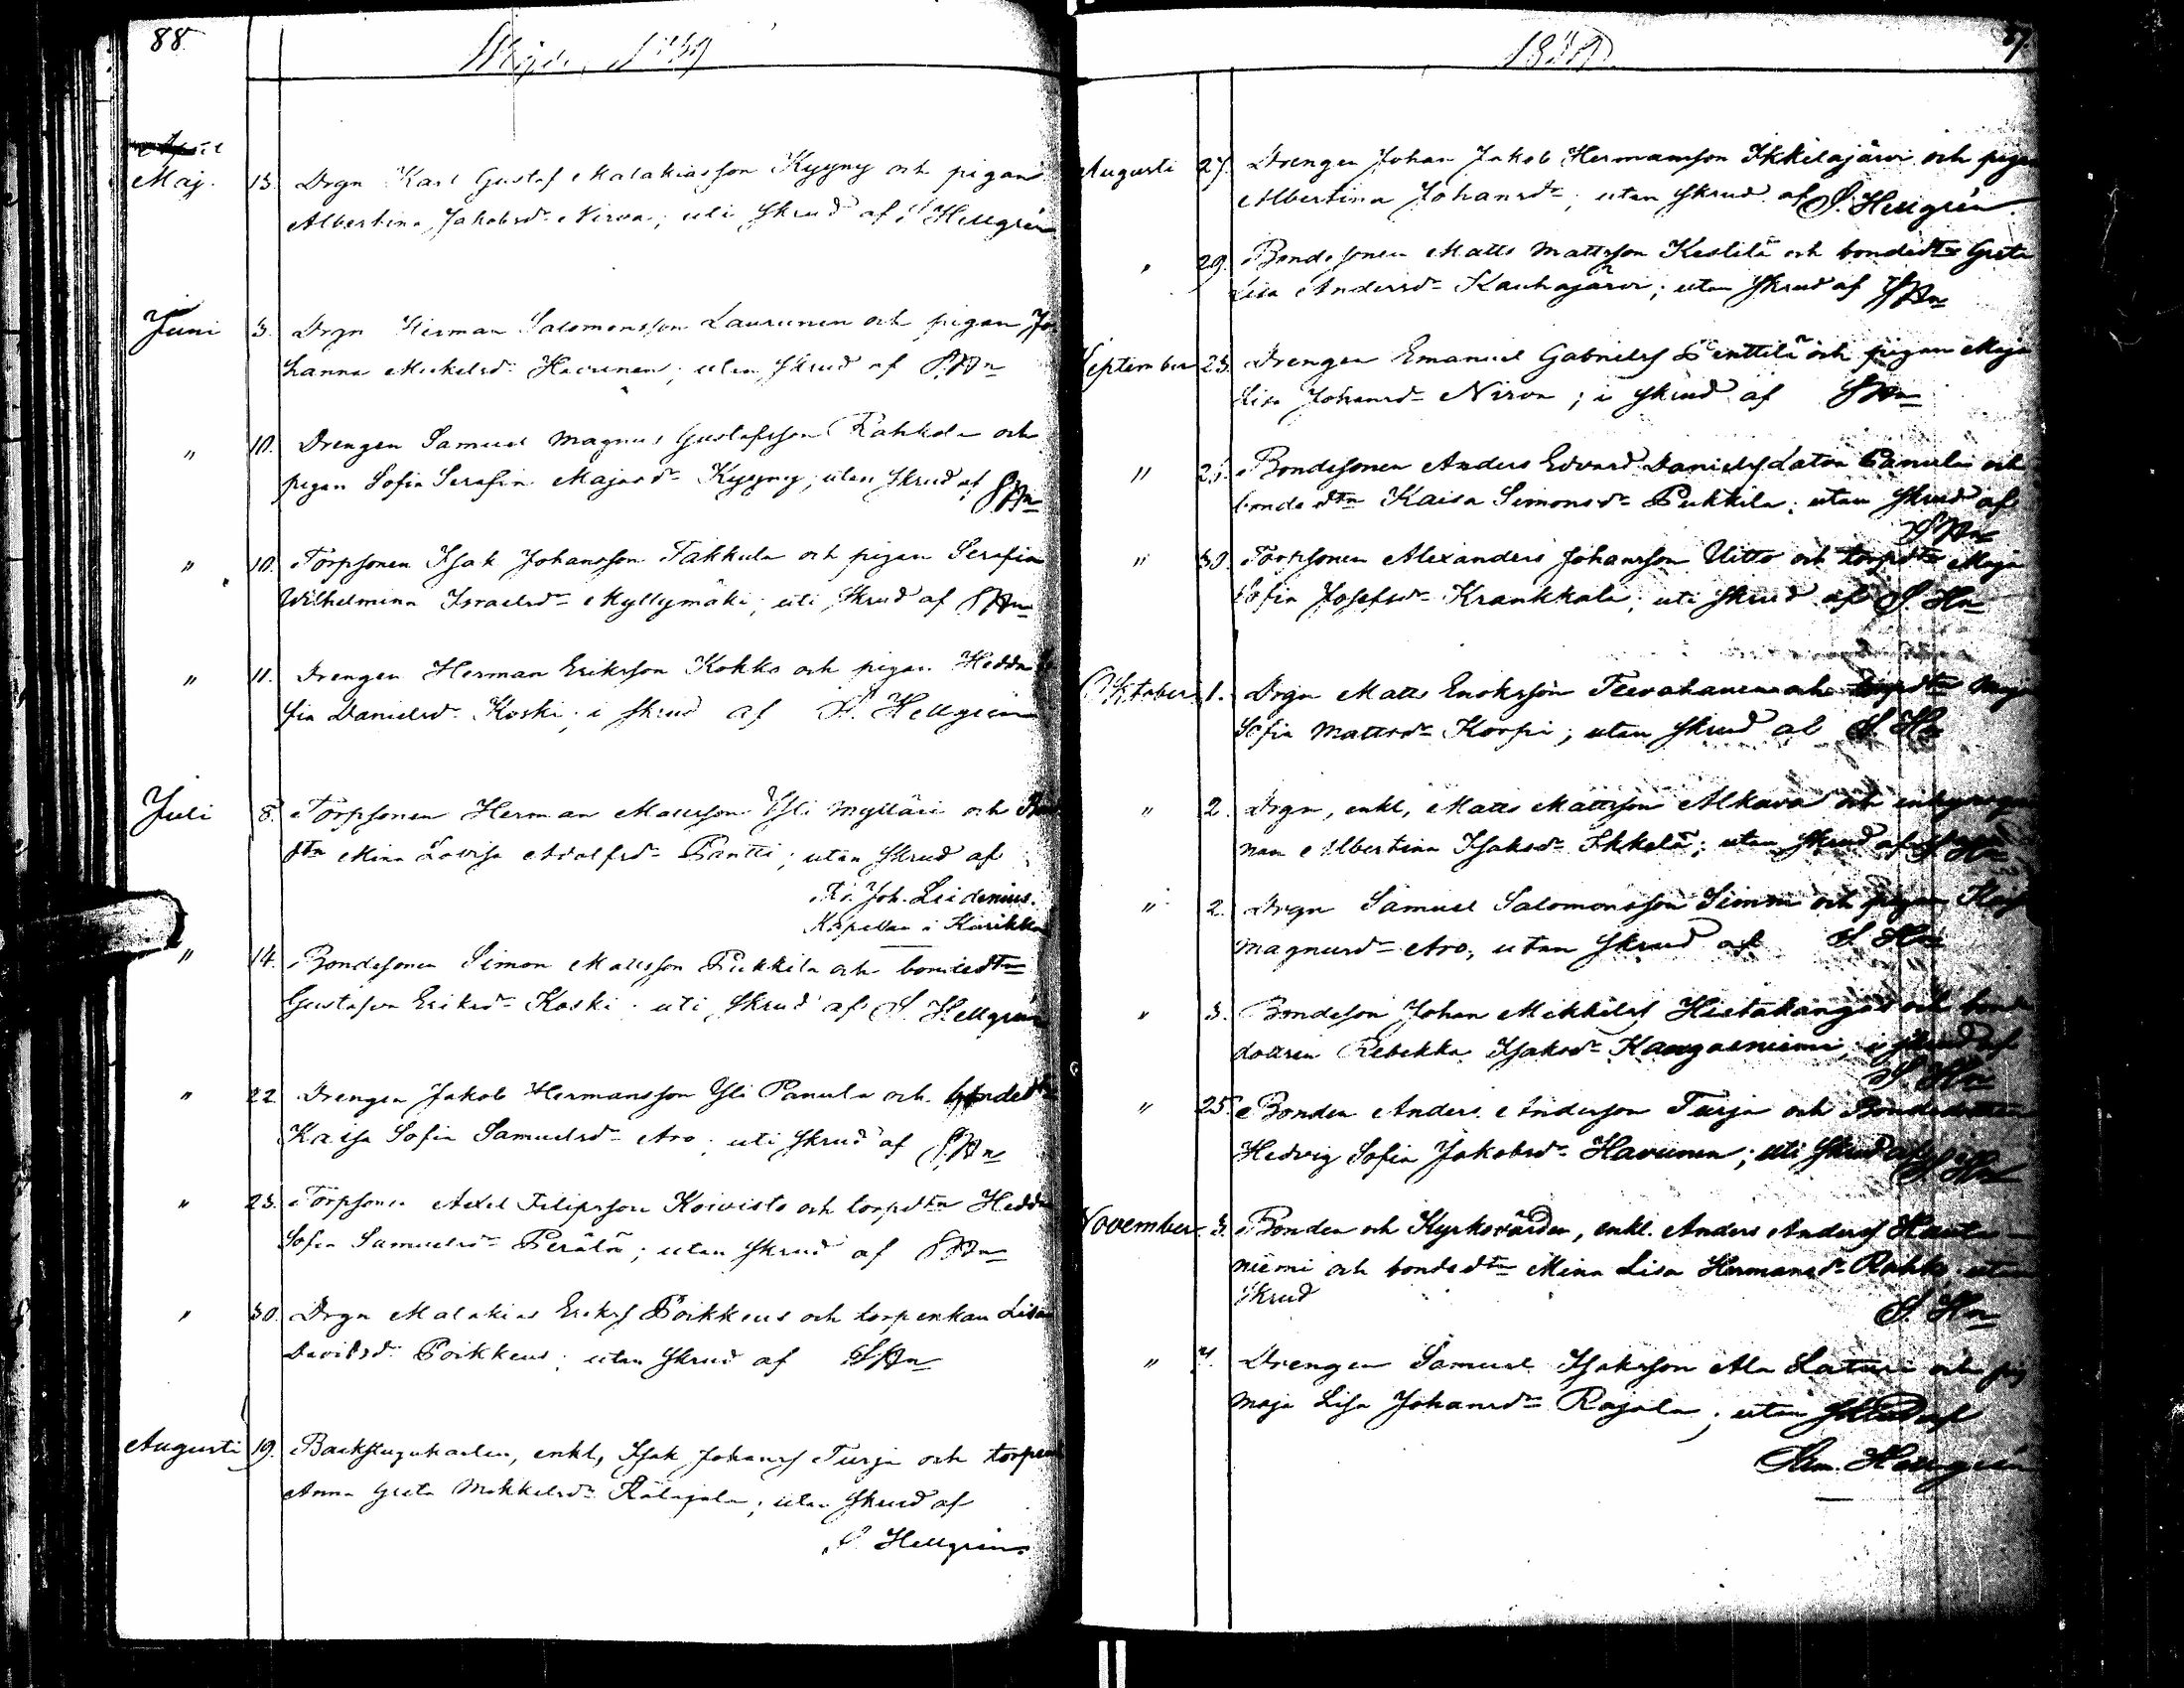 88.
Maj. 13. Drgn Karl Gustaf Malakiasson Kyyny och pigan
Albertina Jakobsdr Nirva; uti skrud af S. Hellgrén
Juni 3. Drgn Herman Salomonsson Laurunen och pigan Jo
hanna Mickelsdr Havunen; utan skrud af S. Hn
" 10. Drengen Samuel Magnus Gustafsson Rahkola och
pigan Sofia Serafina Majasdr Kyyny; utan skrud af S Hn
" 10. Torpsonen Isak Johansson Takkula och pigan Serafia
Wilhelmina Israelsdr Myllymäki; uti skrud af S Hn
" 11. Drengen Herman Eriksson Kokko och pigan Hedda
fia Danielsdr Koski; i skrud af S. Hellgrén
Juli 8. Torpsonen Herman Mattsson Yli Mylläri och
dtn Mina Lovisa Adolfsdr Pantti; utan skrud af
Joh. Leidenius.
Kapellan i Kurikka
" 14. Bondesonen Simon Mattsson Pukkila och bondedtn
Gustafva Eriksdr Koski; uti skrud af S. Hellgrén
" 22. Drengen Jakob Hermansson Yli Panula och bondedtn
Kaisa Sofia Samuelsdr Aro; uti skrud af S. Hn
" 23. Torpsonen Axel Filipsson Koivisto och torpdtn Hedda
Sofia Samuelsdr Perälä; utan skrud af S Hn
" 30. Drgn Malakias Eriksf Poikkeus och torpenkan Lisa
Davidsdr Poikkeus; utan skrud af S Hn
Augusti 19. Backstugukarlen, enkl, Isak Johansf Turja och torpen
Anna Greta Mikkelsdr; utan skrud af
S. Hellgrén.
Augusti 27. Drengen Johan Jakob Hermansson Ikkeläjärvi och pigan
Albertina Johansdr; utan skrud af S. Hellgrén.
" 29. Bondesonen Matts Mattsson Keskilä och bondedtn Greta
Lisa Andersdr Kauhajärvi; utan skrud af S Hn
September 23. Drengen Emanuel Gabrielsf Penttilä och pigan Maja
Lisa Johansdr Nirva; i skrud af S Hn
" 25. Bondesonen Anders Edvard Danielsf Latva Panula och
bondedtn Kaisa Simonsdr Pukkila; utan skrud af
S Hn
" 30. Torpsonen Alexanders Johansson Uitto och torpdtn Maja
Sofia Josefsdr Krankkala; uti skrud af S. Hn
Oktober 1. Drgn Matts Enoksson och torpdtn Maja
Sofia Mattsdr Korpi; utan skrud af S. Hn
" 2. Drgn, enkl, Matts Mattsson Alkava och
nan Albertina Isaksdr Ikkelä; utan skrud af S Hn
" 2. Drgn Samuel Salomonsson och pigan
Magnusdr Aro; utan skrud af S Hn
" 3. Bondeson Johan Mikkelsf Hietakangas och bonde
dottren Rebekka Isaksdr Kangasniemi; i skrud af
S Hn
" 25. Bonden Anders Andersson Turja och Bondedottren
Hedvig Sofia Jakobsdr Havunen; uti skrud af S. Hn
November 3. Bonden och Kyrkovärden, enkl. Anders Andersf Hauta-
niemi och bondedtn Mina Lisa Hermansdr Rahko, utan
skrud
S. Hn
" 4. Drengen Samuel Isaksson Ala Laturi och pig
Maja Lisa Johansdr Rajala; utan skrud af
Sam. Hellgrén